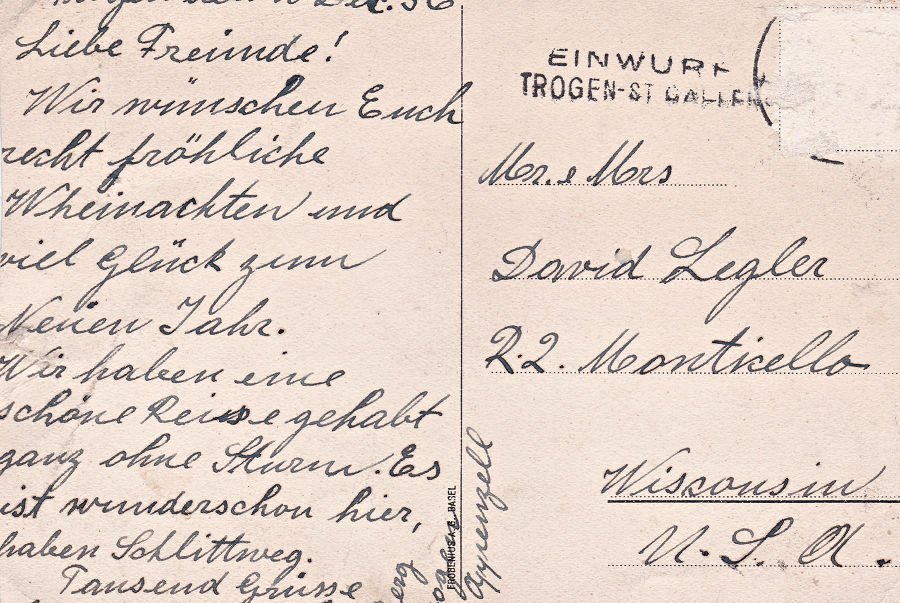 Dez. 56
Liebe Freunde!
Wir wünschen Euch
recht fröhliche
Wheinachten und
viel Glück zum
Neuen Jahr.
Wir haben eine
schöne Reise gehabt
ganz ohne Sturm. Es
ist wunderschon hier,
haben Schlittweg.
Tausend Grüsse
Appenzell
FROBENIUS A.G. BASEL
EINWURF
TROGEN-ST GALLEN
Mr. & Mrs
David Legler
R.2. Monticello
Wisconsin
U. S. A.